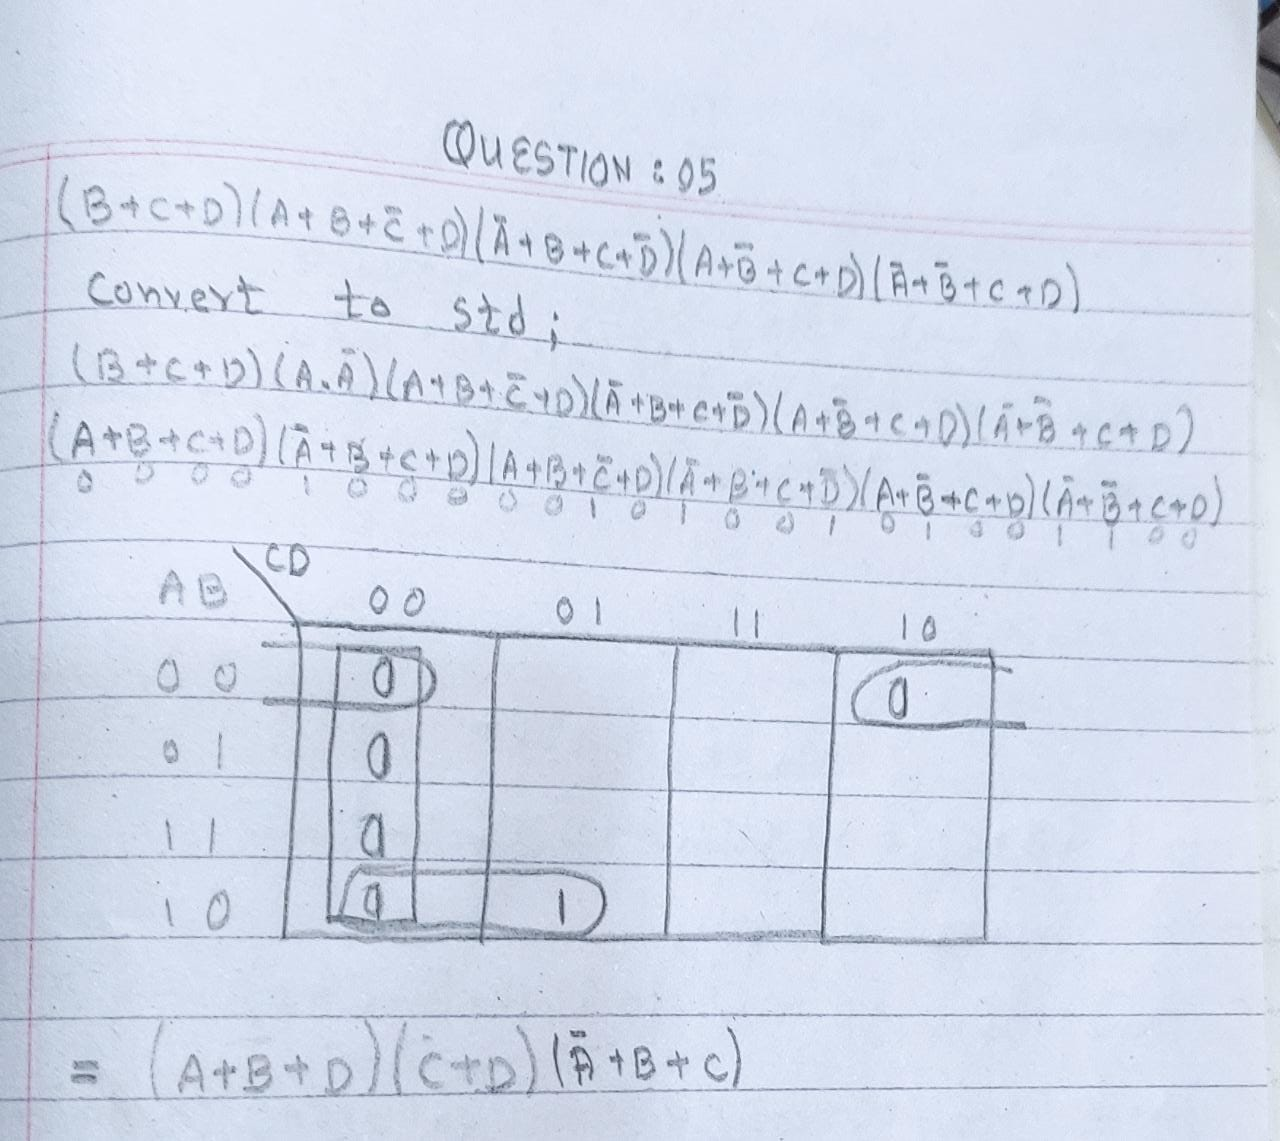 QUESTION : 05
(B+C+D)(A+B+C̄+D)(Ā+B+C+D̄)(A+B̄+C+D)(Ā+B̄+C+D)
Convert to std;
(B+C+D)(A.Ā)(A+B+C̄+D)(Ā+B+C+D̄)(A+B̄+C+D)(Ā+B̄+C+D)
(A+B+C+D)(Ā+B+C+D)(A+B+C̄+D)(Ā+B+C+D̄)(A+B̄+C+D)(Ā+B̄+C+D)
0 0 0 0 1 0 0 0 0 0 1 0 1 0 0 1 0 1 0 0 1 1 0 0
CD
AB 00 01 11 10
00 0 0
01 0
11 0
10 0 1
= (A+B+D)(C+D)(Ā+B+C)